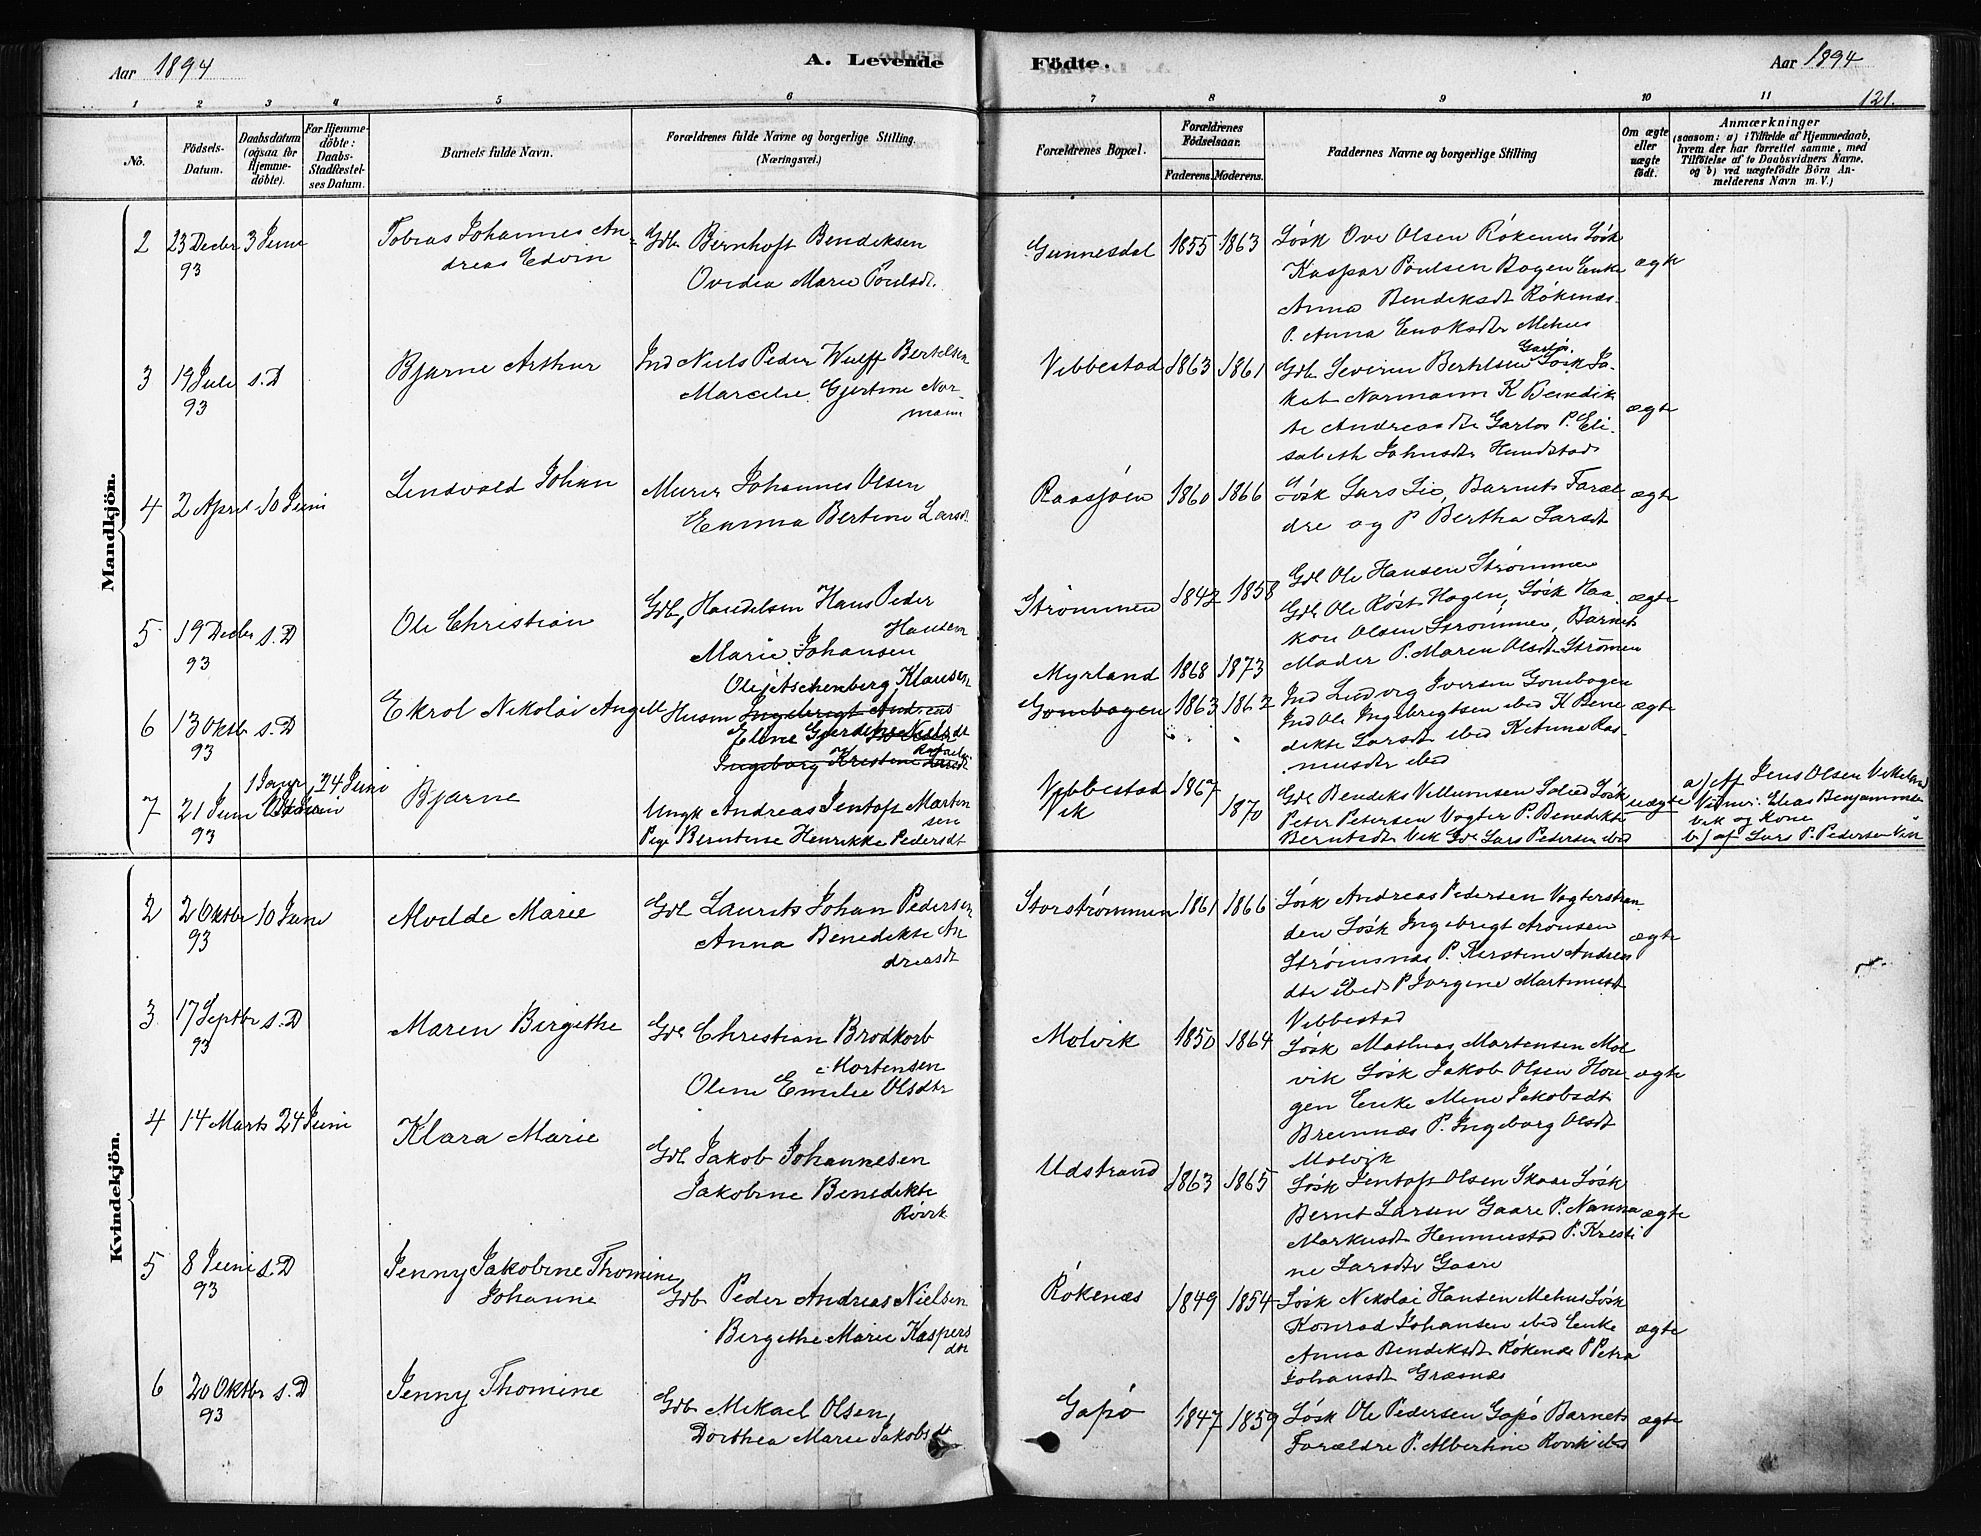 Aar 1894
A. Levende
Födte.
Aar 1894
121.
1 2 3 4 5 6 7 8 9 10 11
No.
Födsels-Datum.
Daabsdatum (ogsaa for Hjemme-döbte).
For Hjemme-döbte: Daabs-Stadfæstelses Datum.
Barnets fulde Navn.
Forældrenes fulde Navne og borgerlige Stilling. (Næringsvei.)
Forældrenes Bopæl.
Forældrenes Födselsaar.
Faderens. Moderens.
Faddernes Navne og borgerlige Stilling
Om ægte eller uægte födt.
Anmærkninger
(saasom: a) i Tilfælde af Hjemmedaab, hvem der har forrettet samme, med Tilföielse af to Daabsvidners Navne, og b) ved uægtefödte Börn Anmelderens Navn m. V.)
Mandkjön.
2 23 Decbr 93 3 Juni
Tobias Johannes Andreas Edvin
Gdb Bernhoft Bendiksen
Ovedia Marie Poulsdt.
Gunnesdal 1855 1863
Løsk Ove Olsen Røkenes Løsk
Kaspar Poulsen Bogen Enke
Anna Bendiksdt Røkenes
P. Anna Enoksdtr Mehus
ægte
3 19 Juli 93 s.D
Bjarne Arthur
Ind Niels Peder Wulff Bertelsen
Marcelie Gjertine Normann
Vebbestad 1863 1861
Gdb Severin Bertelsen Garlos Løsk Ja-
kob Normann K Bendik
te Andreasdtr Garlos P. Eli-
sabeth Johnsdtr Hundstad
ægte
4 2 April 10 Juni
Lindvald Johan
Murer Johannes Olsen
Emma Bertine Larsdt.
Raasjøen 1860 1866
Løsk Lars Lie, Barnets Foræl
dre og P Bertha Larsdt
ægte
5 19 Decbr 93 s.D
Ole Christian
Gdb, Handelsm Hans Peder Hansen
Marie Johansen
Strømmen 1842 1858
Gdb Ole Hansen Strømmen
Gdb Ole Røst Hagen, Løsk Haa-
kon Olsen Strømmen, Barnets
Moder P. Maren Olsdt Strømen
ægte
6 13 Oktb 93 s.D
Ekrol Nikolai Angell
Ole Aschenberg Klausen
Husm Ingebrigt Andreas
Elene Gjerdine Nielsdt
Ingeborg Kristine Larsdt
Myrland 1868 1873
Gombogen 1863 1862
Ind Ludvig Iversen Gombogen
Ind Ole Ingebrigtsen ibid K Bene
dikte Larsdt ibid K Anna Ras-
musdtr ibid
ægte
7 21 Juni 93 24 Juni
Bjarne
Ungk Andreas Jentoft Martensen
Pige Berntine Henrikke Pedersdt
Vebbestad 1867
Vik 1870
Gdb Bendiks Villumsen Løsk
Peter Petersen Vogter P. Benedikte
Berntsdt Vik Gdb Lars Pedersen ibid
uægte
a) Af Jens Olsen
Vidner: Elias Benjaminsen
Vik og Kone
b) af Lars P. Pedersen Vik
Kvindekjön.
2 2 Oktbr 93 10 Juni
Alvilde Marie
Gdb Laurits Johan Pedersen
Anna Benedikte Andreasdt
Storstrømmen 1861 1866
Løsk Andreas Pedersen Vogterstran
den Løsk Ingebrigt Aronsen
Strømsnæs P. Kerstine Andreas
dtr ibid P Jørgine Martinusdt
Vebbestad
ægte
3 17 Septbr 93 s.D
Maren Birgithe
Gdb Christian Brodkorb Mortensen
Oline Emelie Olsdtr
Molvik 1850 1864
Løsk Mathias Mortensen Mol
vik Løsk Jakob Olsen Hou-
gen Enke Mene Jakobsdt
Bremnæs P. Ingeborg Olsdt
Molvik
ægte
4 14 Marts 24 Juni
Klara Marie
Gdb Jakob Johannesen
Jakobine Benedikte Røvik
Udstrand 1863 1865
Løsk Jentoft Olsen Skaar Løsk
Bernt Larsen Gaare P. Nanna
Markusdt Hemmestad P. Kristi
ne Larsdtr Gaare
ægte
5 8 Juni 93 s.D
Jenny Jakobine Thomine
Johanne
Gdb Peder Andreas Nielsen
Birgithe Marie Kaspersdtr
Røkenæs 1849 1854
Løsk Nikolai Hansen Mehus Løsk
Konrad Johansen ibid Enke
Anna Bendiksdt Røkenæs P Petra
Johansdt Græsnæs
ægte
6 20 Oktbr 93 s.D
Jenny Thomine
Gdb Mikael Olsen
Dorthea Marie Jakobsdt
Gapø 1847 1859
Løsk Ole Pedersen Gapø Barnets
Forældre P. Albertine Rovik ibid
ægte